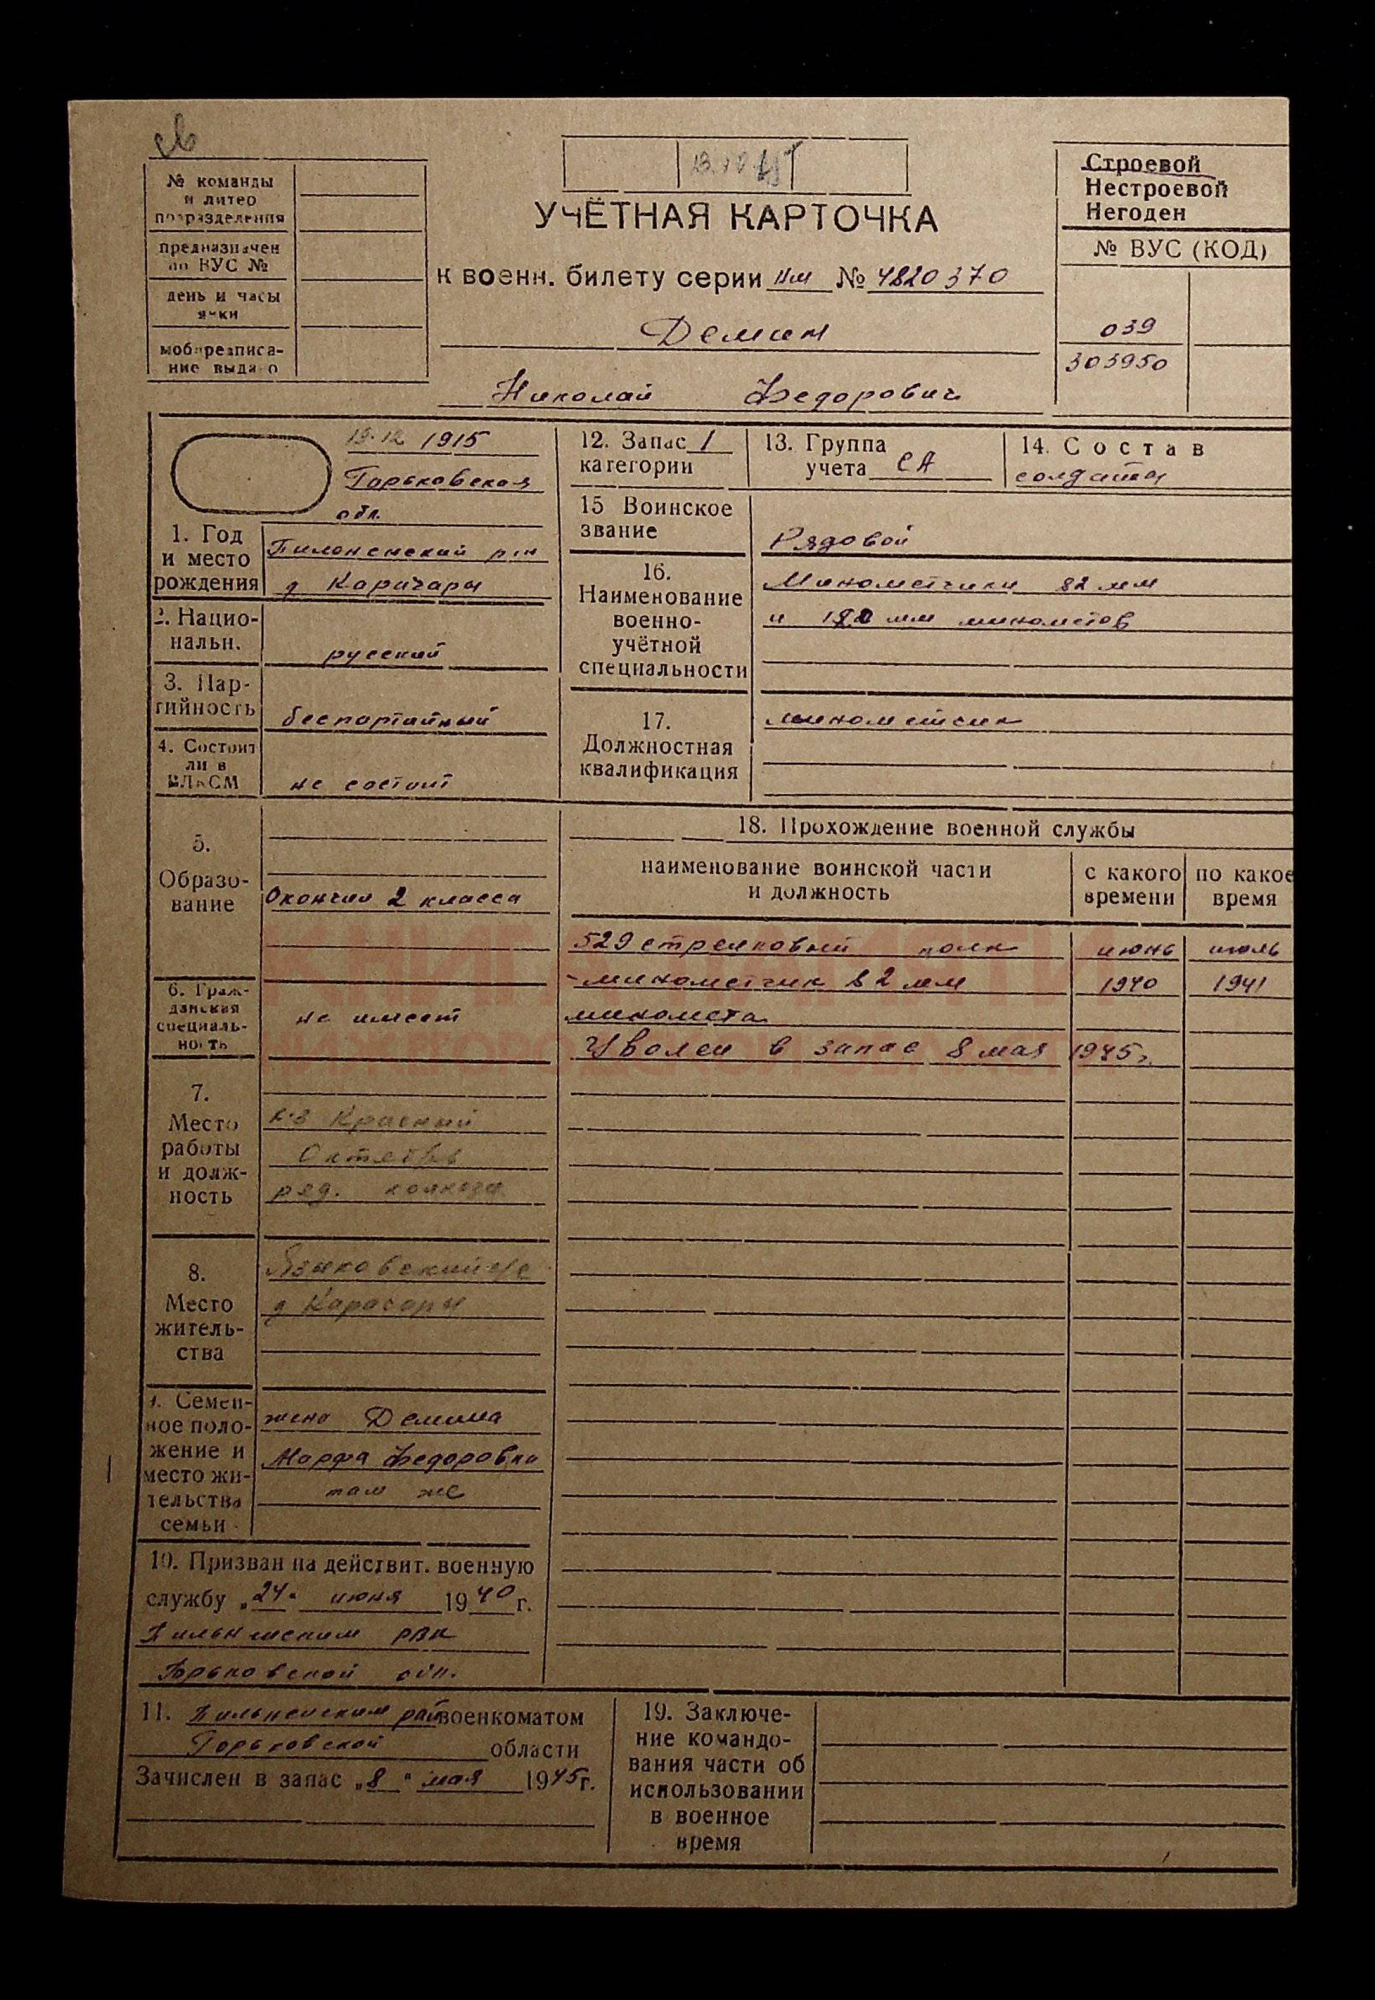 № команды
и литер
подразделения
предназначен
по ВУС №
день и часы
явки
мобпредписа-
ние выдано
УЧЁТНАЯ КАРТОЧКА
к военн. билету серии НМ № 4820370
Демин
Николай Федорович
Строевой
Нестроевой
Негоден
№ ВУС (КОД)
039
303950
1. Год
и место
рождения
19.12 1915
Горьковская
обл.
Пильненский р-н
д Каричары
2. Нацио-
нальн.
русский
3. Пар-
тийность
беспартийный
4. Состоит
ли в
ВЛКСМ
не состоит
5.
Образо-
вание
Окончил 2 класса
6. Граж-
данская
специаль-
ность
не имеет
7.
Место
работы
и долж-
ность
к-з Красный
Октябрь
ряд. колхоза
8.
Место
житель-
ства
Языковский с/с
д Карасары
9. Семей-
ное поло-
жение и
место жи-
тельства
семьи
жена Демина
Марфа Федоровна
там же
10. Призван на действит. военную
службу „24" июня 1940 г.
Пильненским РВК
Горьковской обл.
11. Пильненским райвоенкоматом
Горьковской области
Зачислен в запас „8" мая 1945 г.
12. Запас 1
категории
13. Группа
учета СА
14. Состав
солдаты
15 Воинское
звание
Рядовой
16.
Наименование
военно-
учётной
специальности
Минометчики 82 мм
и 120 мм минометов
17.
Должностная
квалификация
минометчик
18. Прохождение военной службы
наименование воинской части
и должность
с какого
времени
по какое
время
529 стрелковый полк июнь июль
-минометчик 82 мм 1940 1941
миномета
Уволен в запас 8 мая 1945 г.
19. Заключе-
ние командо-
вания части об
использовании
в военное
время